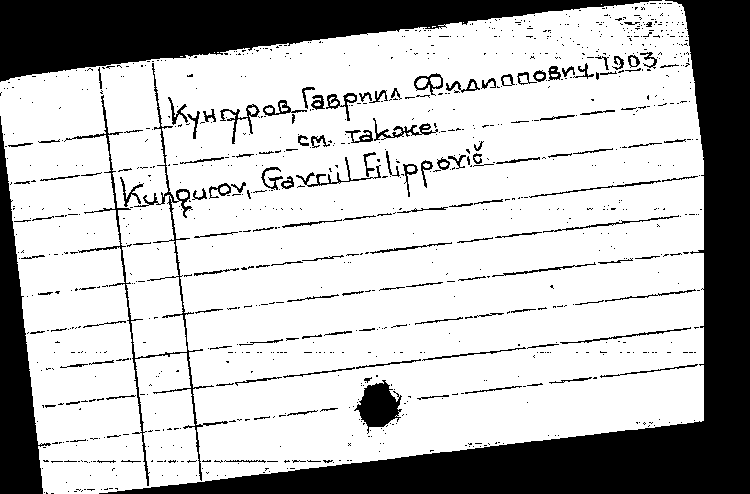 Кунгуров, Гавриил Филиппович, 1903
см. также:
Kungurov, Gavriil Filippovič